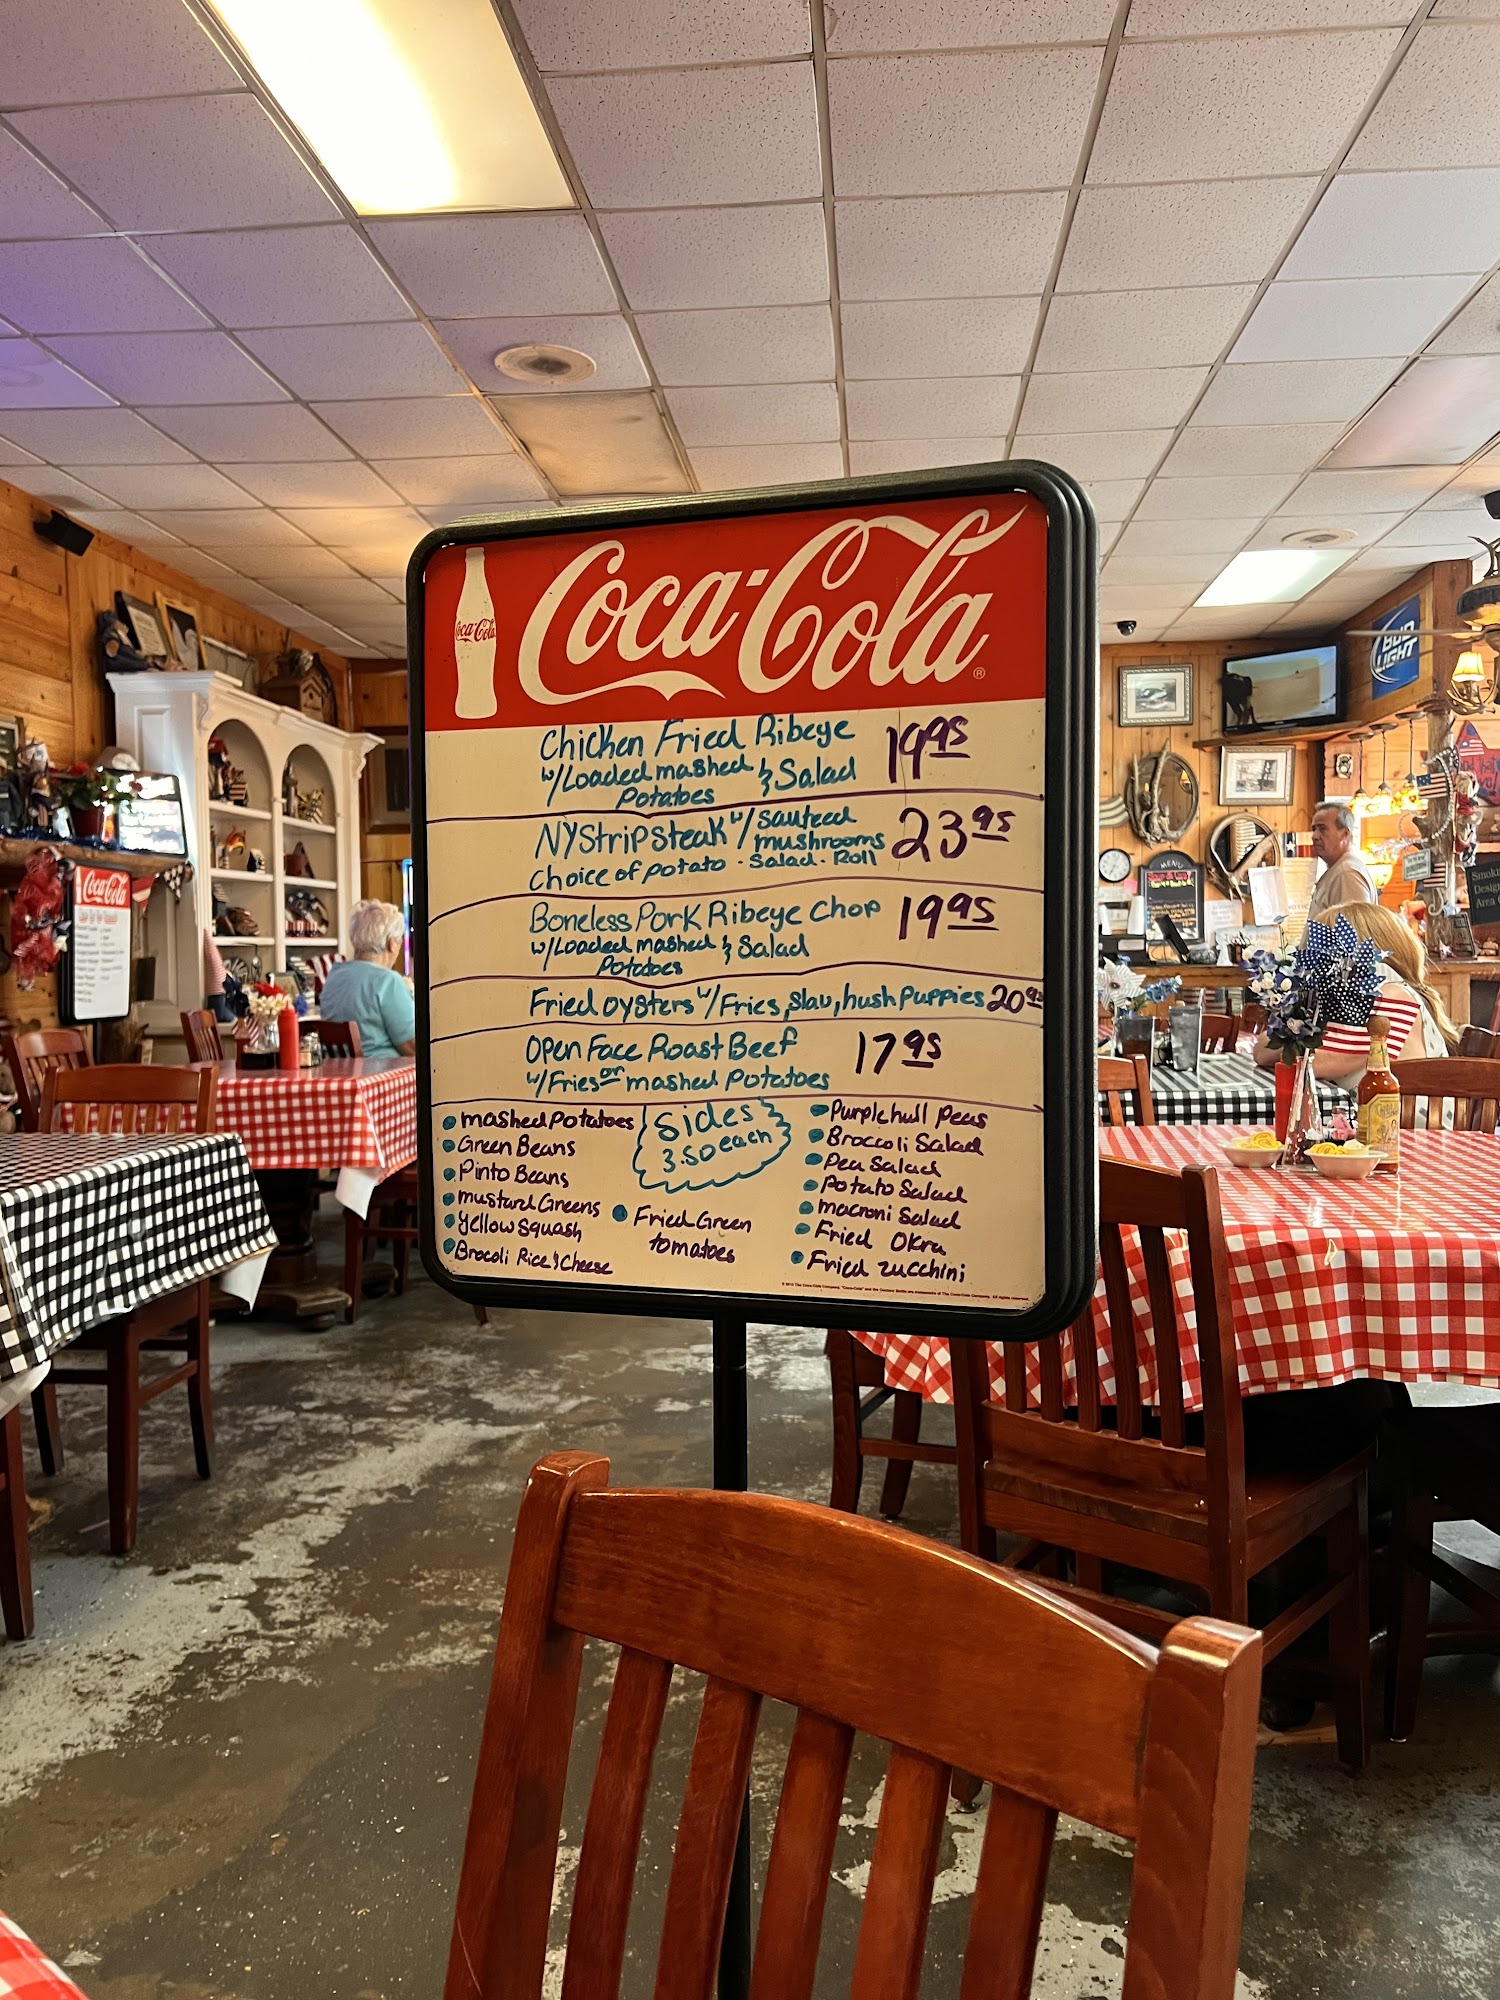 Coca-Cola
Coca-Cola ®
Chicken Fried Ribeye 19.95
w/Loaded mashed & Salad
Potatoes
NY Strip Steak w/ Sauteed
mushrooms 23.95
Choice of potato - Salad - Roll
Boneless Pork Ribeye Chop 19.95
w/Loaded mashed & Salad
Potatoes
Fried oysters w/ Fries, Slaw, hushpuppies 20.95
Open Face Roast Beef 17.95
w/Fries or mashed Potatoes
Sides
3.50 each
mashed Potatoes
Green Beans
Pinto Beans
mustard Greens
Yellow Squash
Brocoli Rice & Cheese
Fried Green
tomatoes
Purplehull Peas
Broccoli Salad
Pea Salad
Potato Salad
macroni Salad
Fried Okra
Fried zucchini
Coca-Cola
BUD
LIGHT
MENU